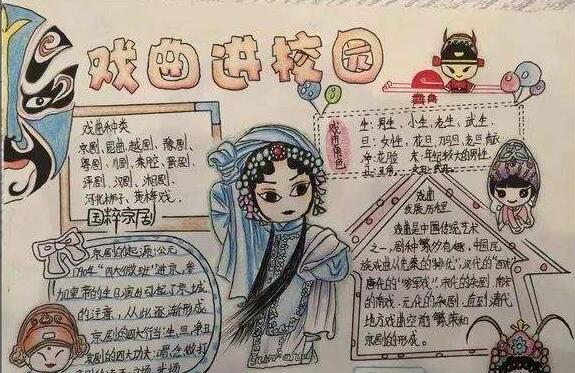 戏曲进校园
戏曲种类
京剧,昆曲,越剧、豫剧,
粤剧,川剧,秦腔,晋剧,
评剧,汉剧,湘剧,
河北梆子,黄梅戏.
国粹京剧
京剧的起源:公元
1790年"四大徽班"进京,参
加皇帝的生日演出引起了京城
的注意,从此逐渐形成
京剧的四大行当:生.旦.净.丑
京剧的四大功夫:唱.念.做.打
戏曲角色
生:男生、小生,老生,武生.
旦:女性,花旦,刀马旦,老旦
净:花脸 末:年纪较大的男性.
戏曲
发展历史
戏曲是中国传统艺术
之一,剧种繁多有趣,中国民
族戏曲从先秦的"俳优",汉代的"百戏"
唐代的"参军戏".宋代的杂剧,南宋
的南戏.元代的杂剧,直到清代,
地方戏曲空前繁荣和
京剧的形成。